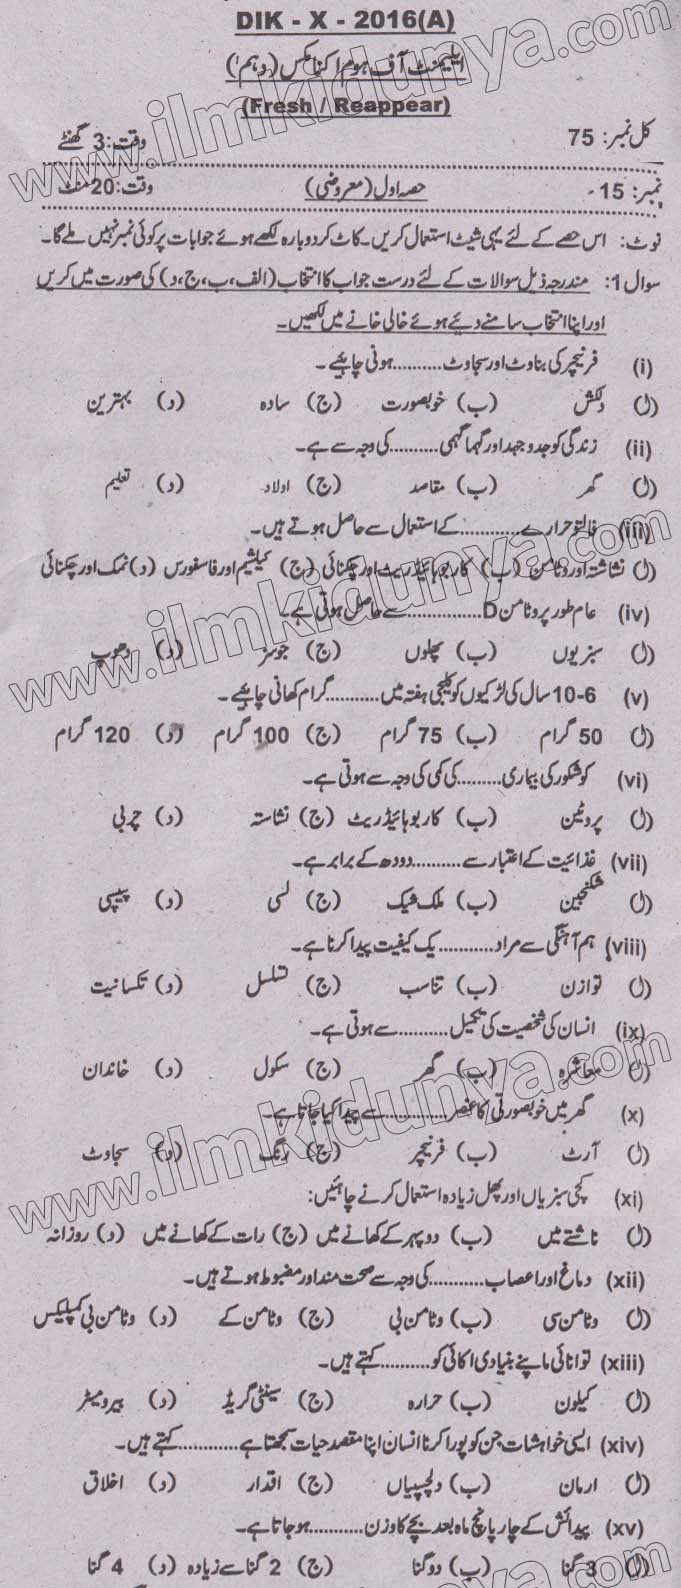 DIK - X - 2016(A)
ایلیمنٹ آف ہوم اکنامکس (دہم)
(Fresh / Reappear)
کل نمبر: 75 وقت: 3 گھنٹے
نمبر: 15- حصہ اول (معروضی) وقت: 20 منٹ
نوٹ: اس حصے کے لئے یہی شیٹ استعمال کریں۔ کاٹ کر دوبارہ لکھے ہوئے جوابات پر کوئی نمبر نہیں ملے گا۔
سوال 1: مندرجہ ذیل سوالات کے لئے درست جواب کا انتخاب (الف، ب، ج، د) کی صورت میں کریں
اور اپنا انتخاب سامنے دیئے ہوئے خالی خانے میں لکھیں۔
(i) فرنیچر کی بناوٹ اور سجاوٹ..........ہونی چاہیئے۔
(ا) دلکش (ب) خوبصورت (ج) سادہ (د) بہترین
(ii) زندگی کو جدوجہد اور گہما گہمی..........کی وجہ سے ہے۔
(ا) گھر (ب) مقاصد (ج) اولاد (د) تعلیم
(iii) فالتو حرارے..........کے استعمال سے حاصل ہوتے ہیں۔
(ا) نشاستہ اور وٹامن (ب) کاربوہائیڈریٹ اور چکنائی (ج) کیلشیم اور فاسفورس (د) نمک اور چکنائی
(iv) عام طور پر وٹامن D..........سے حاصل ہوتی ہے۔
(ا) سبزیوں (ب) پھلوں (ج) جوسز (د) دھوپ
(v) 10-6 سال کی لڑکیوں کو کلیجی ہفتہ میں..........گرام کھانی چاہیئے۔
(ا) 50 گرام (ب) 75 گرام (ج) 100 گرام (د) 120 گرام
(vi) کوشکور کی بیماری..........کی کمی کی وجہ سے ہوتی ہے۔
(ا) پروٹین (ب) کاربوہائیڈریٹ (ج) نشاستہ (د) چربی
(vii) غذائیت کے اعتبار سے..........دودھ کے برابر ہے۔
(ا) شکنجبین (ب) ملک شیک (ج) لسی (د) پیپسی
(viii) ہم آہنگی سے مراد..........یک کیفیت پیدا کرنا ہے۔
(ا) توازن (ب) تناسب (ج) تسلسل (د) یکسانیت
(ix) انسان کی شخصیت کی تکمیل..........سے ہوتی ہے۔
(ا) معاشرہ (ب) گھر (ج) سکول (د) خاندان
(x) گھر میں خوبصورتی کا عنصر..........سے پیدا کیا جاتا ہے۔
(ا) آرٹ (ب) فرنیچر (ج) رنگ (د) سجاوٹ
(xi) کچی سبزیاں اور پھل زیادہ استعمال کرنے چاہئیں:
(ا) ناشتے میں (ب) دوپہر کے کھانے میں (ج) رات کے کھانے میں (د) روزانہ
(xii) دماغ اور اعصاب..........کی وجہ سے صحت مند اور مضبوط ہوتے ہیں۔
(ا) وٹامن سی (ب) وٹامن بی (ج) وٹامن کے (د) وٹامن بی کمپلیکس
(xiii) توانائی ماپنے بنیادی اکائی کو..........کہتے ہیں۔
(ا) کیلون (ب) حرارہ (ج) سینٹی گریڈ (د) بیرومیٹر
(xiv) ایسی خواہشات جن کو پورا کرنا انسان اپنا مقصد حیات سمجھتا ہے..........کہتے ہیں۔
(ا) ارمان (ب) دلچسپیاں (ج) اقدار (د) اخلاق
(xv) پیدائش کے چار پانچ ماہ بعد بچے کا وزن..........ہو جاتا ہے۔
(ا) 3 گنا (ب) دوگنا (ج) 2 گنا سے زیادہ (د) 4 گنا
www.ilmkidunya.com
www.ilmkidunya.com
www.ilmkidunya.com